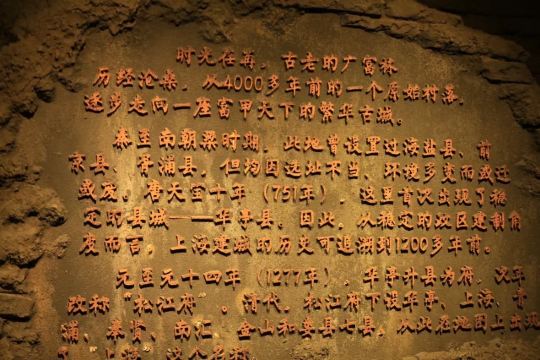 时光荏苒，古老的广富林
历经沧桑，从4000多年前的一个原始村落，
逐步走向一座富甲天下的繁华古城。
秦至南朝梁时期，此地曾设置过海盐县、前
京县、胥浦县，但均因选址不当、环境多变而或迁
或废。唐天宝十年（751年），这里首次出现了稳
定的县城——华亭县，因此，从稳定的政区建制角
度而言，上海建城的历史可追溯到1200多年前。
元至元十四年（1277年），华亭升县为府，次年
改称“松江府”。清代，松江府下设华亭、上海、青
浦、奉贤、南汇、金山和娄县七县，从此在地图上出现